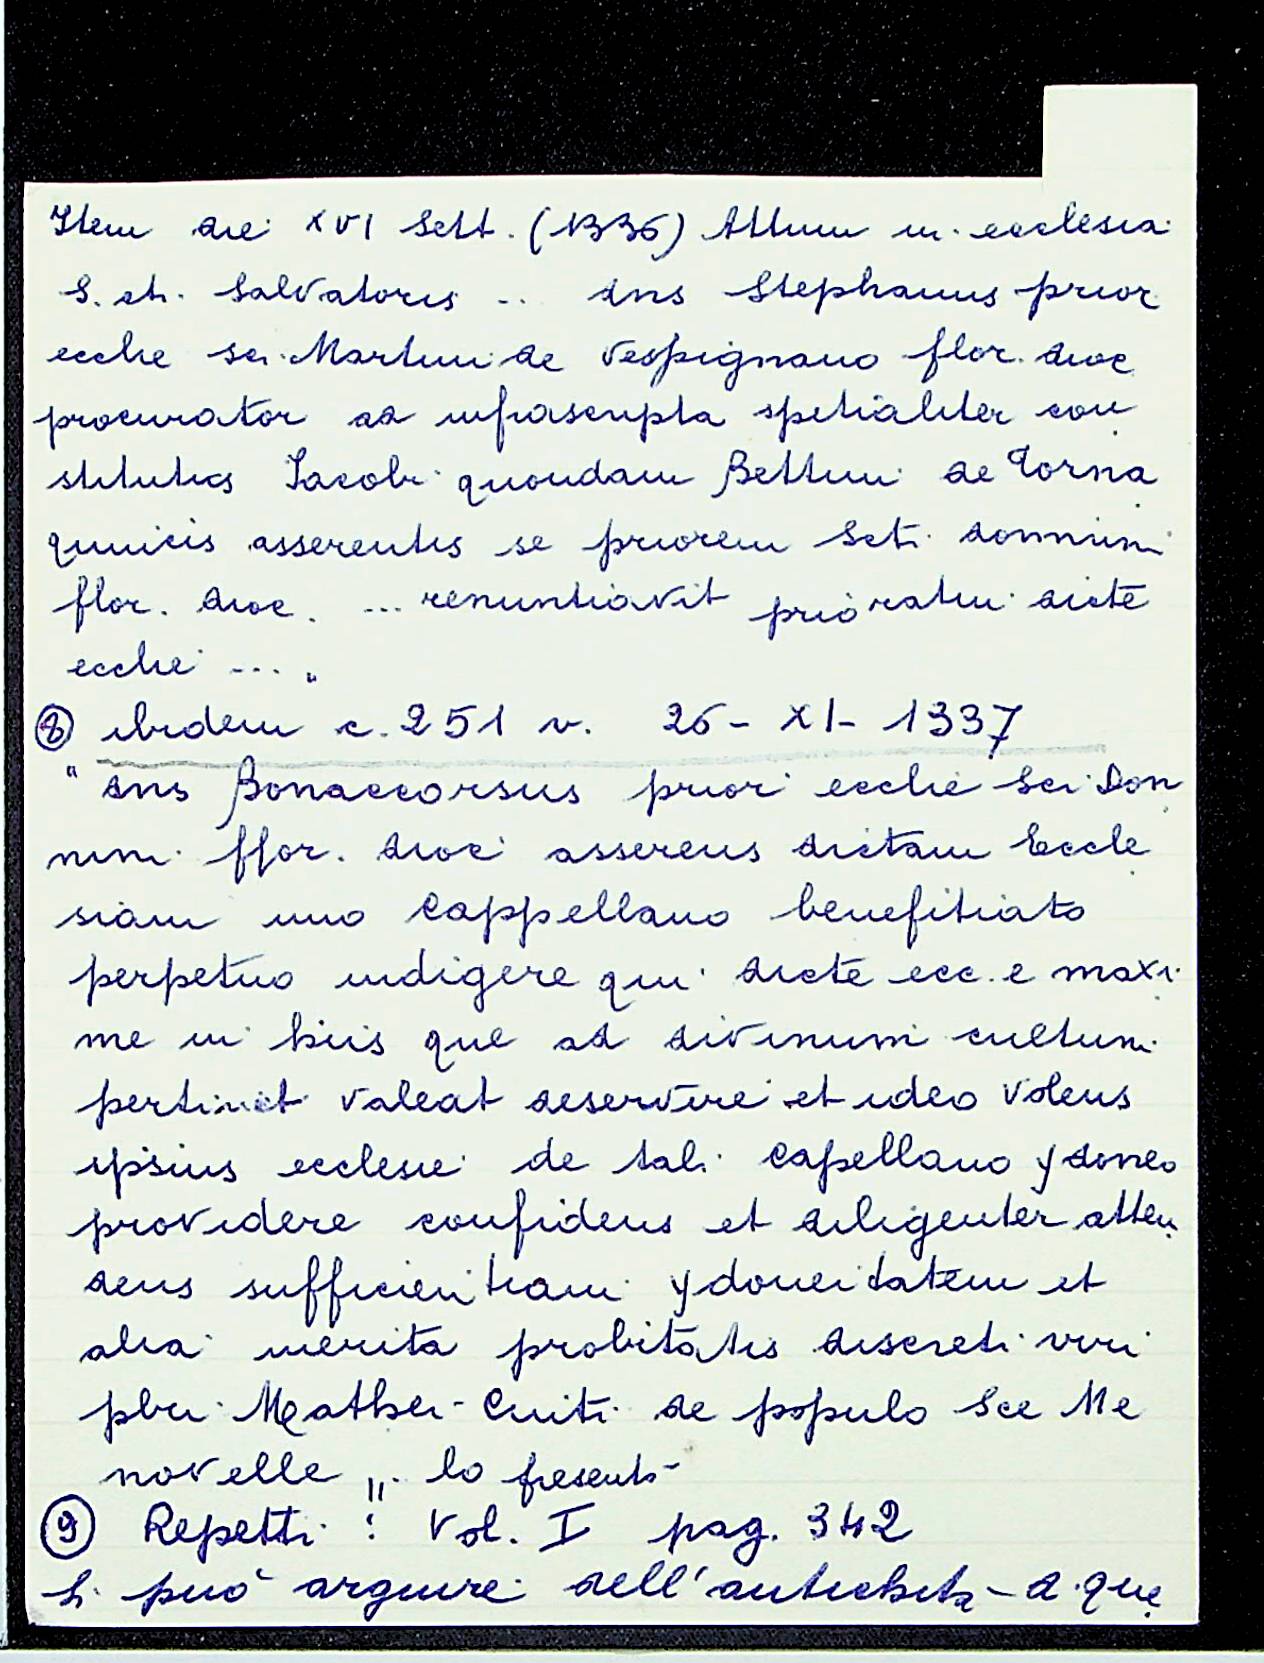 Item die XVI Sett. (1336) Attum in ecclesia
S. et. Salvatoris ... dns Stephanus prior
ecche sci Martini de Vespignano flor. dioc
procurator ad infrascripta spetialiter con
stitutus Iacobi quondam Bettini de Torna
quincis asserentis se priorem Scti donnini
flor. dioc. ... renuntiavit prioratui dicte
ecche ... "
⑧ ibidem c. 251 v. 26 - XI - 1337
" dns Bonaccorsus prior ecche Sci Don
nini ffor. dioc asserens dictam Eccle
siam uno Cappellano benefitiato
perpetuo indigere qui dicte ecc. e maxi
me in hiis que ad divinum cultum
pertinet valeat deservire et ideo volens
ipsius ecclesie de tali Capellano ydoneo
providere confidens et diligenter atten
dens sufficientiam ydoneitatem et
alia merita probitatis discreti viri
pbri Mathei Cuiti de populo Sce Me
novelle ,, lo presentò
⑨ Repetti : Vol. I pag. 342
Si può arguire dell'antichità di que